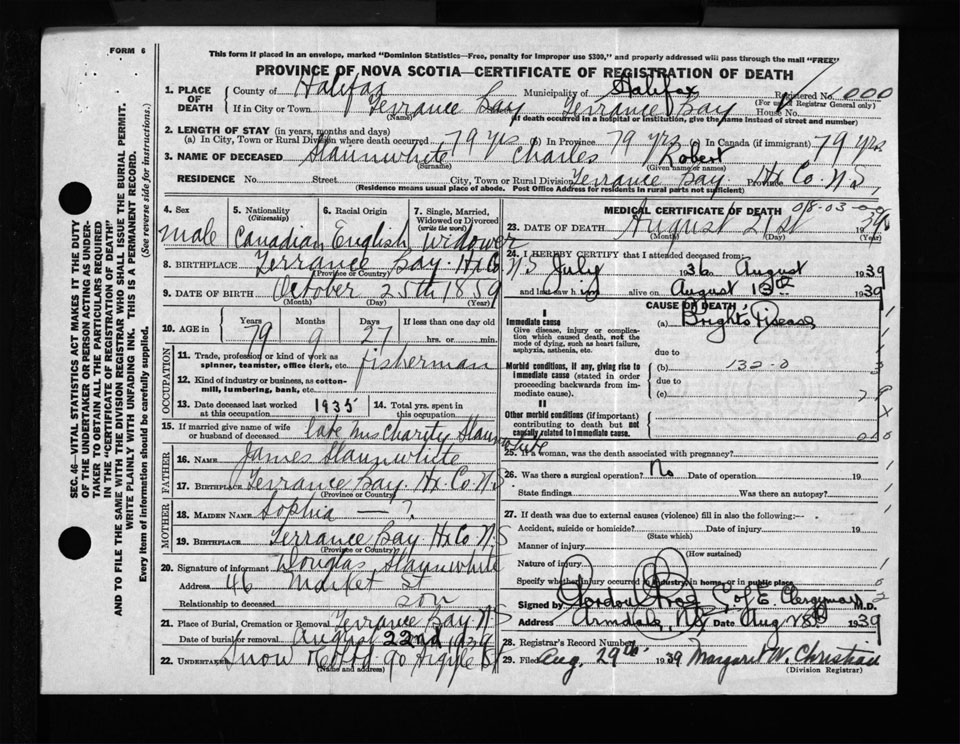 FORM 6
This form if placed in an envelope, marked "Dominion Statistics—Free, penalty for improper use $300," and properly addressed will pass through the mail "FREE"
PROVINCE OF NOVA SCOTIA—CERTIFICATE OF REGISTRATION OF DEATH
1. PLACE OF DEATH County of Halifax Municipality of Halifax Registered No. 000
(For use of Registrar General only)
If in City or Town Terrance Bay Terrance Bay House No.
(Name) (If death occurred in a hospital or institution, give the name instead of street and number)
2. LENGTH OF STAY (in years, months and days)
(a) In City, Town or Rural Division where death occurred 79 yrs (b) In Province 79 yrs (c) In Canada (if immigrant) 79 yrs
3. NAME OF DECEASED Slaunwhite Charles Robert
(Surname) (Given name or names)
RESIDENCE No. Street City, Town or Rural Division Terrance Bay. Province Hx Co. N.S.
(Residence means usual place of abode. Post Office Address for residents in rural parts not sufficient)
4. Sex Male
5. Nationality (Citizenship) Canadian
6. Racial Origin English
7. Single, Married, Widowed or Divorced (write the word) Widower
8. BIRTHPLACE Terrance Bay. Hx Co. N S
(Province or Country)
9. DATE OF BIRTH October 25th 1859
(Month) (Day) (Year)
10. AGE in Years Months Days If less than one day old
79 9 27 hrs. or min.
OCCUPATION
11. Trade, profession or kind of work as spinner, teamster, office clerk, etc. fisherman
12. Kind of industry or business, as cotton-mill, lumbering, bank, etc.
13. Date deceased last worked at this occupation 1935
14. Total yrs. spent in this occupation
15. If married give name of wife or husband of deceased late Mrs Charity Slaunwhite
FATHER
16. NAME James Slaunwhite
17. BIRTHPLACE Terrance Bay. Hx Co. N.S.
(Province or Country)
MOTHER
18. MAIDEN NAME Sophia — ?
19. BIRTHPLACE Terrance Bay. Hx Co. N.S
(Province or Country)
20. Signature of informant Douglas Slaunwhite
Address 46 Market St
Relationship to deceased son
21. Place of Burial, Cremation or Removal Terrance Bay N.S
Date of burial or removal August 22nd 1939
22. Undertaker Snow 90 Argyle St
(Name and address)
MEDICAL CERTIFICATE OF DEATH 08-03-00
23. DATE OF DEATH August 21st 1939
(Month) (Day)
24. I HEREBY CERTIFY that I attended deceased from:
July 1936 August 1939
and last saw him alive on August 13th 1939
CAUSE OF DEATH
I
Immediate cause (a) Bright's Disease
Give disease, injury or complication which caused death, not the mode of dying, such as heart failure, asphyxia, asthenia, etc.
due to
Morbid conditions, if any, giving rise to immediate cause (stated in order proceeding backwards from immediate cause). (b) 132-0
due to
(c)
II
Other morbid conditions (if important) contributing to death but not causally related to immediate cause.
25. If a woman, was the death associated with pregnancy?
26. Was there a surgical operation? No Date of operation 19
State findings Was there an autopsy?
27. If death was due to external causes (violence) fill in also the following:—
Accident, suicide or homicide? Date of injury 19
(State which)
Manner of injury
(How sustained)
Nature of injury
Specify whether injury occurred in industry in home or in public place
Signed by Gordon C. of E. Clergyman M.D.
Address Armdale, N.S. Date Aug 28th 1939
28. Registrar's Record Number
29. Filed Aug. 29th 1939 Margaret W. Christian
(Division Registrar)
SEC. 46—VITAL STATISTICS ACT MAKES IT THE DUTY
OF THE UNDERTAKER OR PERSON ACTING AS UNDERTAKER TO OBTAIN ALL THE PARTICULARS REQUIRED
IN THE "CERTIFICATE OF REGISTRATION OF DEATH"
AND TO FILE THE SAME WITH THE DIVISION REGISTRAR WHO SHALL ISSUE THE BURIAL PERMIT.
WRITE PLAINLY WITH UNFADING INK. THIS IS A PERMANENT RECORD.
Every item of information should be carefully supplied. (See reverse side for instructions.)